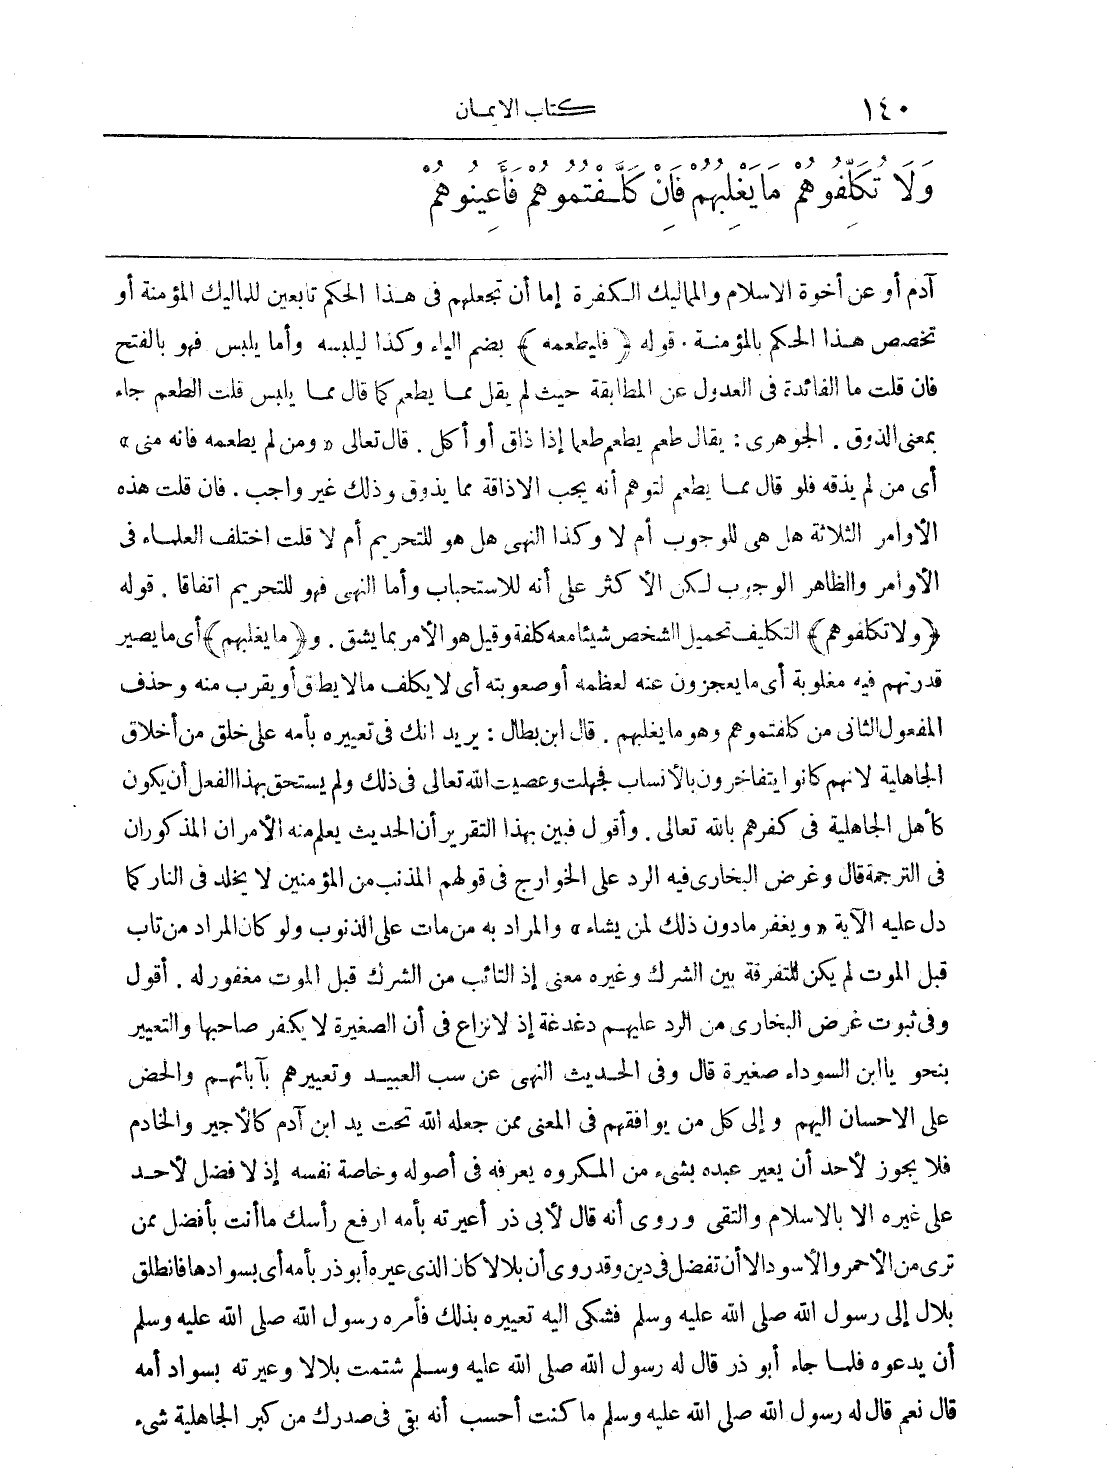 ١٤٠ كتاب الايمان
وَلَا تُكَلِّفُوهُمْ مَا يَغْلِبُهُمْ فَإِنْ كَلَّفْتُمُوهُمْ فَأَعِينُوهُمْ
آدم أو عن أخوة الاسلام والمماليك الكفرة إما أن تجعلهم فى هذا الحكم تابعين للماليك المؤمنة أو
تخصص هذا الحكم بالمؤمنة . قوله ﴿ فليطعمه ﴾ بضم الياء وكذا ليلبسه وأما يلبس فهو بالفتح
فان قلت ما الفائدة فى العدول عن المطابقة حيث لم يقل مما يطعم كما قال مما يلبس قلت الطعم جاء
بمعنى الذوق . الجوهرى : يقال طعم يطعم طعما إذا ذاق أو أكل . قال تعالى « ومن لم يطعمه فانه منى »
أى من لم يذقه فلو قال مما يطعم لتوهم أنه يجب الاذاقة مما يذوق وذلك غير واجب . فان قلت هذه
الأوامر الثلاثة هل هى للوجوب أم لا وكذا النهى هل هو للتحريم أم لا قلت اختلف العلماء فى
الأوامر والظاهر الوجوب لكن الأكثر على أنه للاستحباب وأما النهى فهو للتحريم اتفاقا . قوله
﴿ ولا تكلفوهم ﴾ التكليف تحميل الشخص شيئا معه كلفة وقيل هو الأمر بما يشق . و ﴿ ما يغلبهم ﴾ أى ما يصير
قدرتهم فيه مغلوبة أى ما يعجزون عنه لعظمه أو صعوبته أى لا يكلف مالا يطاق أو يقرب منه وحذف
المفعول الثانى من كلفتموهم وهو ما يغلبهم . قال ابن بطال : يريد انك فى تعييره بأمه على خلق من أخلاق
الجاهلية لانهم كانوا يتفاخرون بالأنساب فجهلت وعصيت الله تعالى فى ذلك ولم يستحق بهذا الفعل أن يكون
كأهل الجاهلية فى كفرهم بالله تعالى . وأقول فبين بهذا التقرير أن الحديث يعلم منه الأمران المذكوران
فى الترجمة قال وغرض البخارى فيه الرد على الخوارج فى قولهم المذنب من المؤمنين لا يخلد فى النار كما
دل عليه الآية « ويغفر مادون ذلك لمن يشاء » والمراد به من مات على الذنوب ولو كان المراد من تاب
قبل الموت لم يكن للتفرقة بين الشرك وغيره معنى إذ التائب من الشرك قبل الموت مغفور له . أقول
وفى ثبوت غرض البخارى من الرد عليهم دغدغة إذ لا نزاع فى أن الصغيرة لا يكفر صاحبها والتعيير
بنحو ياابن السوداء صغيرة قال وفى الحديث النهى عن سب العبيد وتعييرهم بآبائهم والحض
على الاحسان اليهم وإلى كل من يوافقهم فى المعنى ممن جعله الله تحت يد ابن آدم كالأجير والخادم
فلا يجوز لأحد أن يعير عبده بشىء من المكروه يعرفه فى أصوله وخاصة نفسه إذ لا فضل لأحد
على غيره الا بالاسلام والتقى وروى أنه قال لأبى ذر أعيرته بأمه ارفع رأسك ما أنت بأفضل ممن
ترى من الأحمر والأسود الا أن تفضل فى دين وقد روى أن بلالا كان الذى عيره أبو ذر بأمه أى بسوادها فانطلق
بلال إلى رسول الله صلى الله عليه وسلم فشكى اليه تعييره بذلك فأمره رسول الله صلى الله عليه وسلم
أن يدعوه فلما جاء أبو ذر قال له رسول الله صلى الله عليه وسلم شتمت بلالا وعيرته بسواد أمه
قال نعم قال له رسول الله صلى الله عليه وسلم ما كنت أحسب أنه بقى فى صدرك من كبر الجاهلية شىء